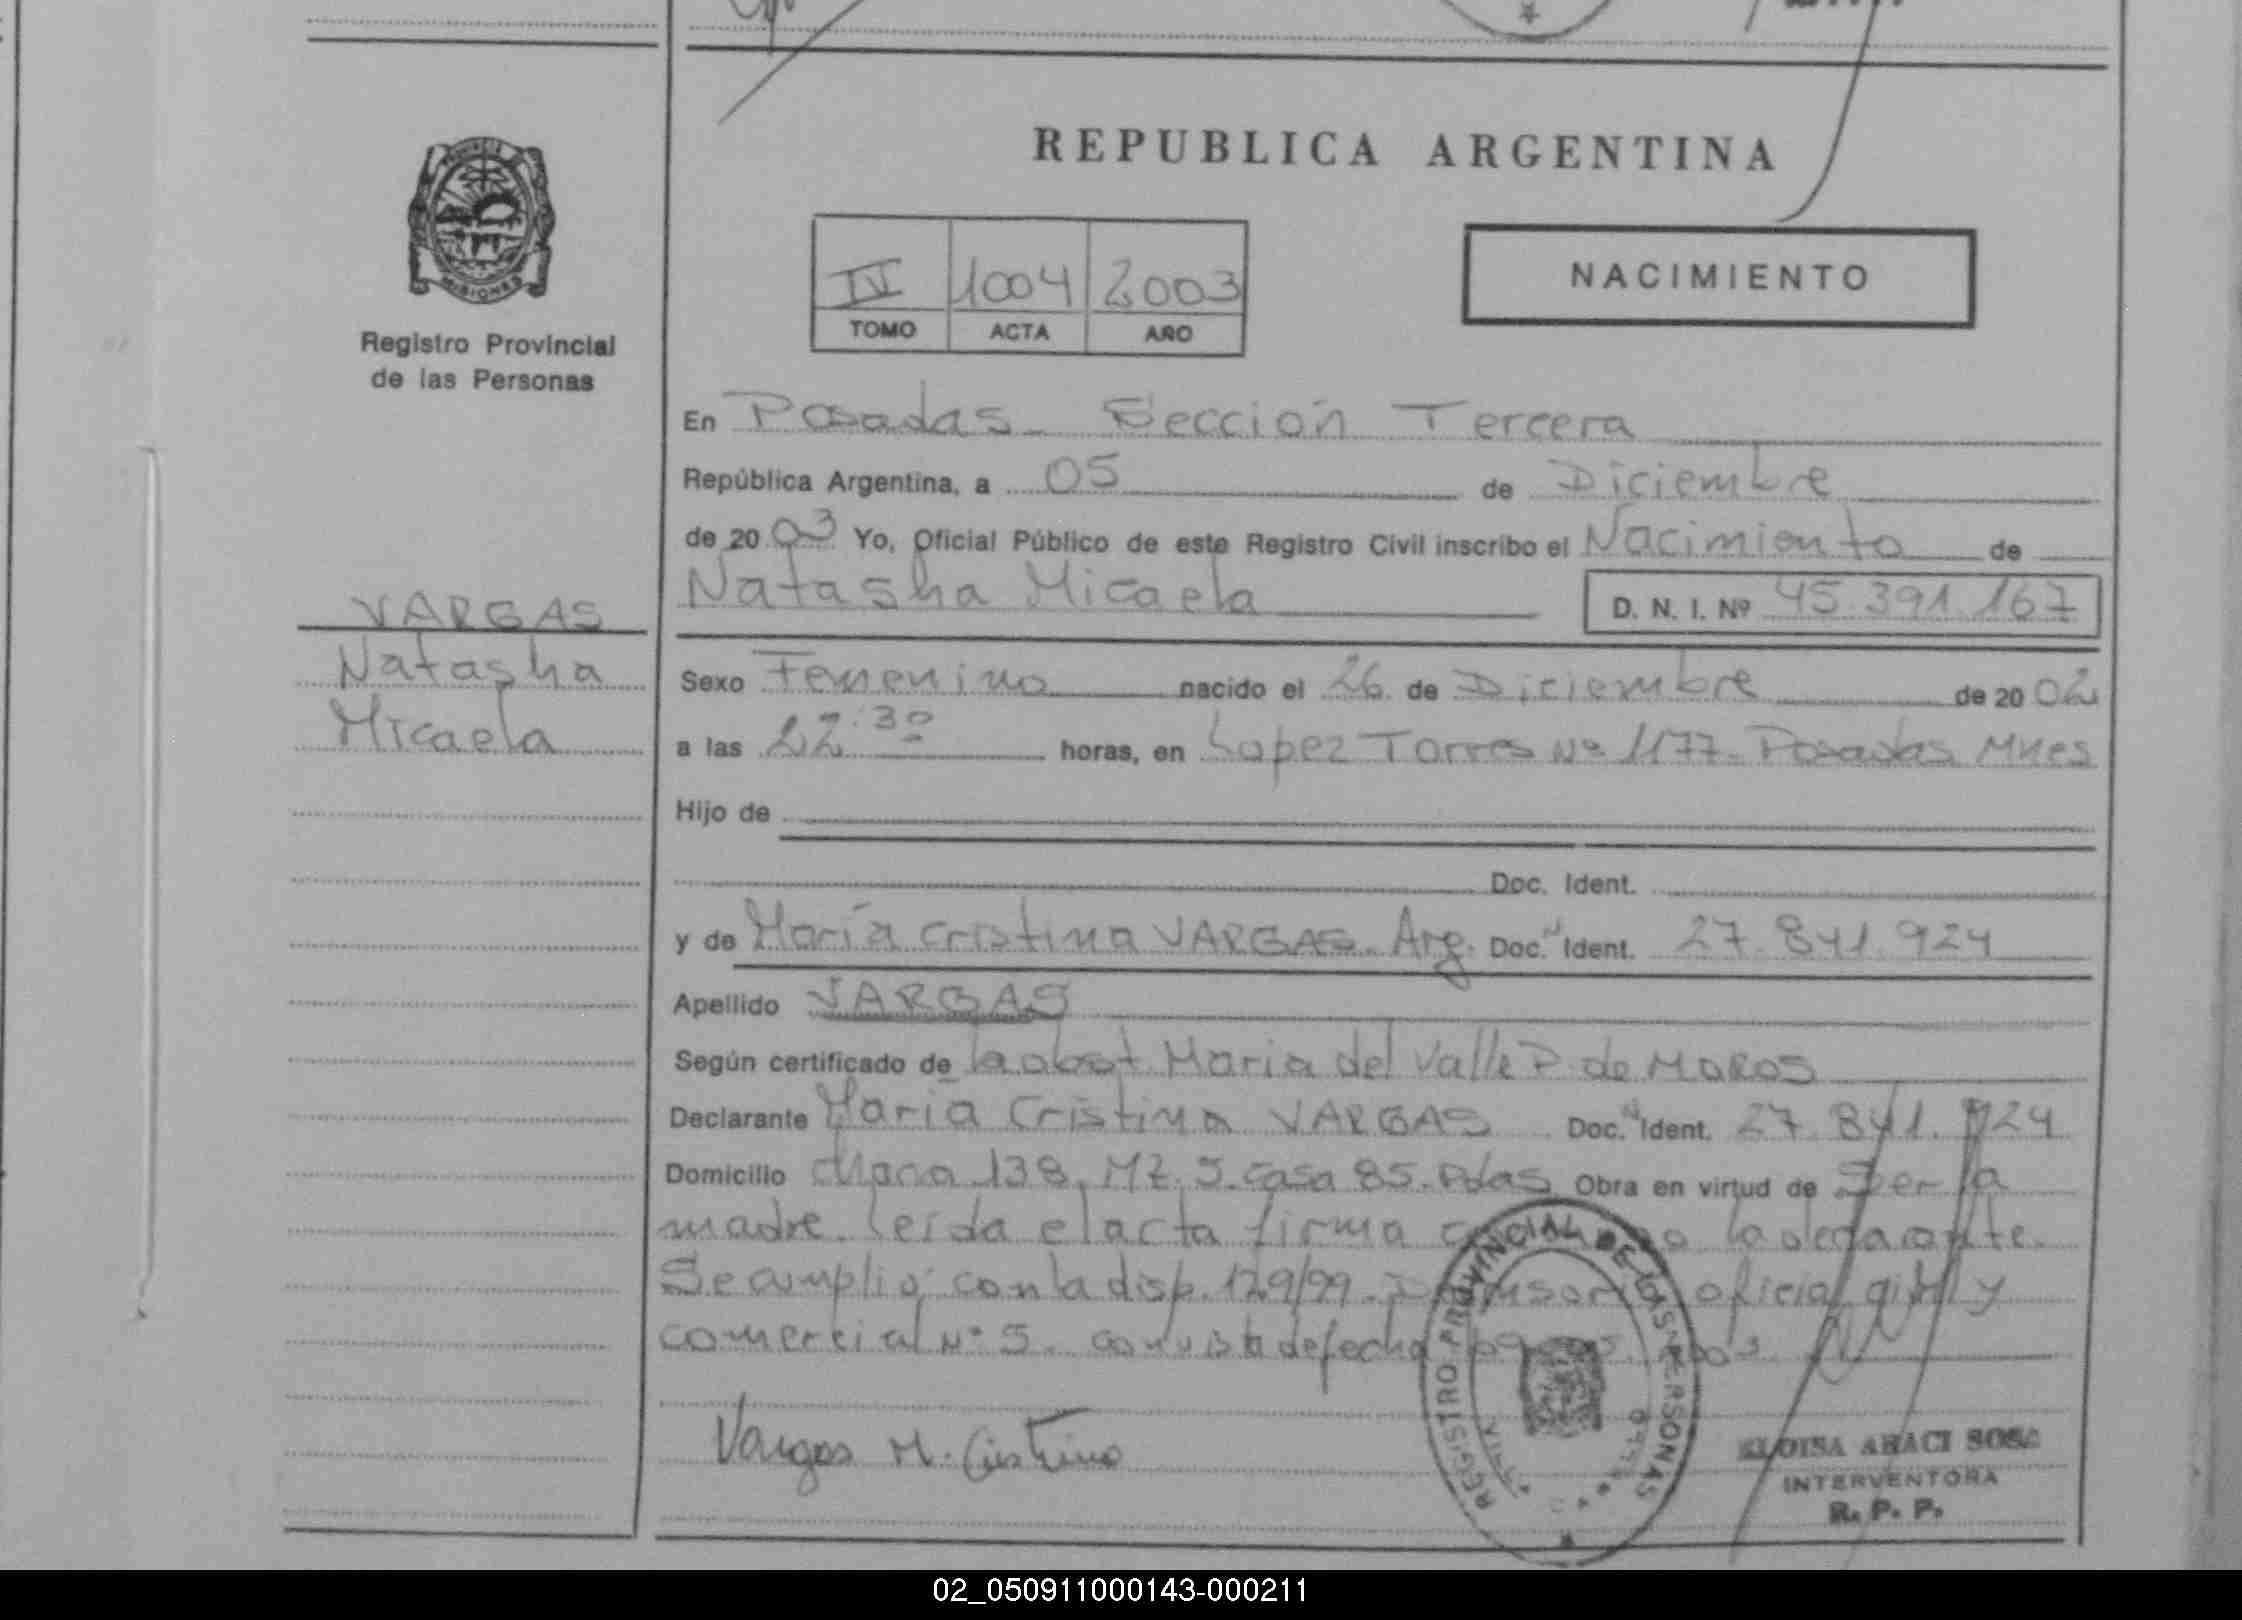 REPUBLICA ARGENTINA
NACIMIENTO
IV 1004 2003
TOMO ACTA AÑO
Registro Provincial
de las Personas
VARGAS
Natasha
Micaela
En Posadas - Sección Tercera
República Argentina, a 05 de Diciembre
de 2003 Yo, Oficial Público de este Registro Civil inscribo el Nacimiento de
Natasha Micaela D. N. I. Nº 45.391.167
Sexo Femenino nacido el 26 de Diciembre de 2002
a las 22:30 horas, en Lopez Torres Nº 1177- Posadas Mnes
Hijo de
Doc. Ident.
y de María Cristina VARGAS. Arg. Doc. Ident. 27.841.924
Apellido VARGAS
Según certificado de la obst. Maria del Valle P. de MOROS
Declarante María Cristina VARGAS Doc. Ident. 27.841.924
Domicilio chacra 138. MZ. 5. casa 85. Pdas Obra en virtud de Ser la
madre. leída el acta firma la declarante.
Se cumplió con la disp. 129/99. oficial y
comercial Nº 5. con vista de fecha
Vargas M. Cristina
REGISTRO PROVINCIAL DE LAS PERSONAS
ELOISA ARACI SOSA
INTERVENTORA
R. P. P.
02_050911000143-000211